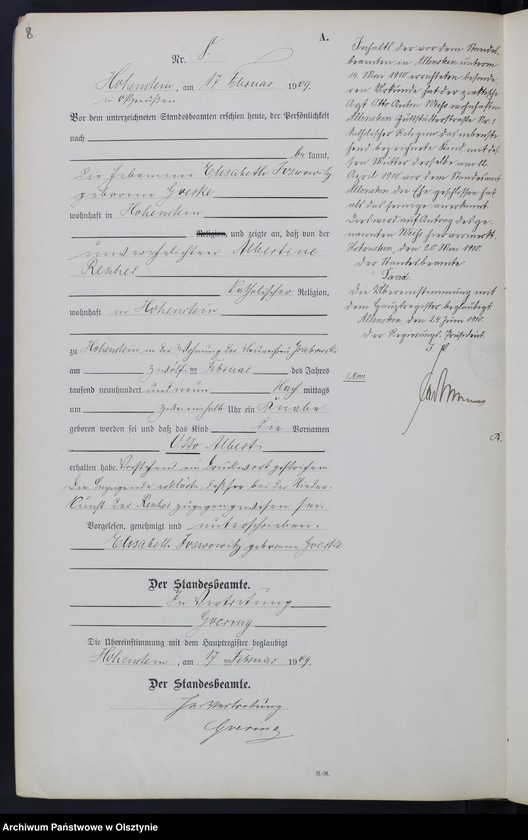 8
A.
Nr. 8
Hohenstein, am 17 Februar 1909.
in Ostpreußen
Vor dem unterzeichneten Standesbeamten erschien heute, der Persönlichkeit
nach
be kannt,
die Hebamme Elisabeth
geborene
wohnhaft in Hohenstein
Religion, und zeigte an, daß von der
unverehelichten Albertine
Resches
katholischer Religion,
wohnhaft in Hohenstein
zu Hohenstein in der Wohnung des Grabowski
am zwölf ten Februar des Jahres
tausend neunhundert und neun Nach mittags
um Uhr ein Knabe
geboren worden sei und daß das Kind die Vornamen
Otto Albert
erhalten habe. Vorstehend ein Druckwort gestrichen.
Die Anzeigende erklärte, daß sie bei der Nieder-
kunft der Resches zugegen gewesen sei.
Vorgelesen, genehmigt und unterschrieben.
Elisabeth geborene
Der Standesbeamte.
In Vertretung
Goering
Die Übereinstimmung mit dem Hauptregister beglaubigt
Hohenstein, am 17 ten Februar 1909.
Der Standesbeamte.
In Vertretung
Goering
Inhalts der vor dem Standes-
beamten in Allenstein unterm
14. Mai 1910 errichteten besonde-
ren Urkunde hat der praktische
Arzt Otto Anton wohnhaft in
Allenstein Guttstädterstraße Nr. 1
katholischer Religion das nebenste-
hend bezeichnete Kind mit des-
sen Mutter derselbe am 12.
April 1910 vor dem Standesamt
Allenstein die Ehe geschlossen hat
als das seinige anerkannt
Dies wird auf Antrag des ge-
nannten hier vermerkt.
Hohenstein, den 20. Mai 1910.
Der Standesbeamte
Die Übereinstimmung mit
dem Hauptregister beglaubigt.
Allenstein, den 24 Juni 1910.
Der Regierungs-Präsident.
Archiwum Państwowe w Olsztynie